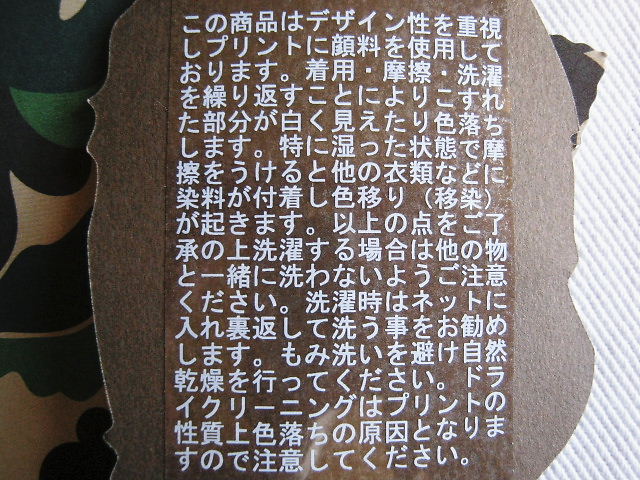 この商品はデザイン性を重視
しプリントに顔料を使用して
おります。着用・摩擦・洗濯
を繰り返すことによりこすれ
た部分が白く見えたり色落ち
します。特に湿った状態で摩
擦をうけると他の衣類などに
染料が付着し色移り（移染）
が起きます。以上の点をご了
承の上洗濯する場合は他の物
と一緒に洗わないようご注意
ください。洗濯時はネットに
入れ裏返して洗う事をお勧め
します。もみ洗いを避け自然
乾燥を行ってください。ドラ
イクリーニングはプリントの
性質上色落ちの原因となりま
すので注意してください。